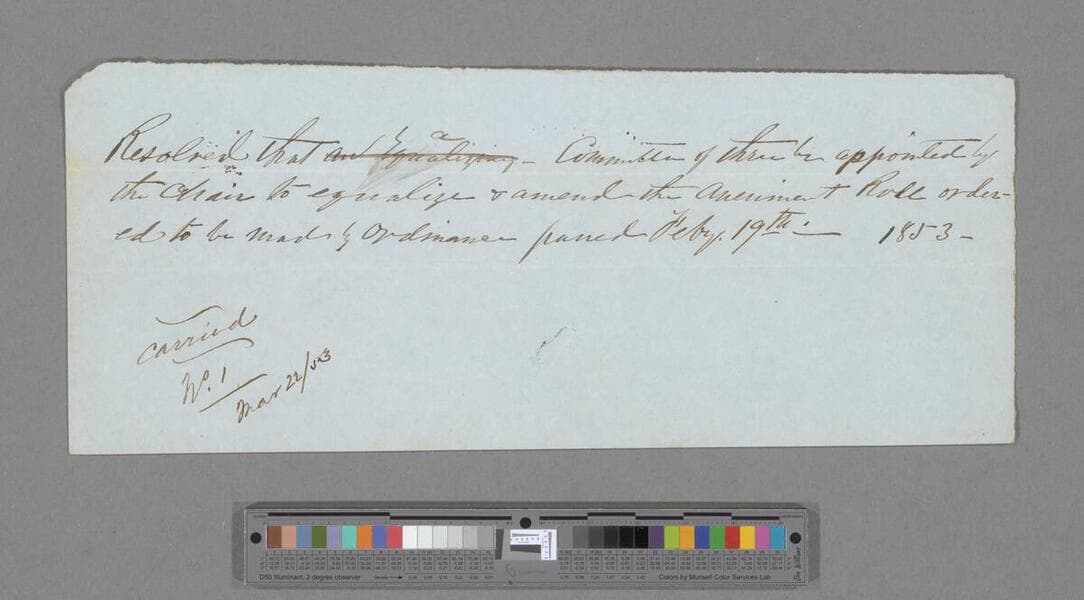 Resolved that an Equalizing a Committee of three be appointed by
the Chair to equalize & amend the Assessment Roll order-
ed to be made by Ordinance passed Feby. 19th. — 1853 –
carried
No. 1
Mar 22/53
D50 Illuminant, 2 degree observer
Colors by Munsell Color Services Lab